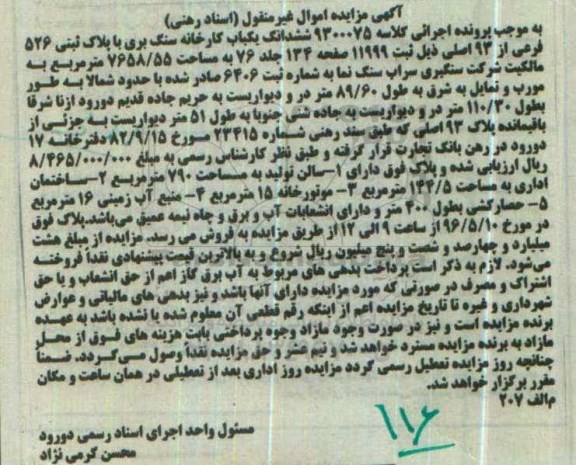 آگهی مزایده اموال غیرمنقول (اسناد رهنی)
به موجب پرونده اجرائی کلاسه ۹۳۰۰۰۷۵ ششدانگ یکباب کارخانه سنگ بری با پلاک ثبتی ۵۲۶
فرعی از ۹۳ اصلی ذیل ثبت ۱۱۹۹۹ صفحه ۱۳۴ جلد ۷۶ به مساحت ۷۶۵۸/۵۵ مترمربع به
مالکیت شرکت سنگبری سراب سنگ نما به شماره ثبت ۶۴۰۶ صادر شده با حدود شمالا به طور
مورب و تمایل به شرق به طول ۸۹/۶۰ متر در و دیواریست به حریم جاده قدیم دورود ازنا شرقا
بطول ۱۱۰/۳۰ متر در و دیواریست به جاده شنی جنوبا به طول ۵۱ متر دیواریست به جزئی از
باقیمانده پلاک ۹۳ اصلی که طبق سند رهنی شماره ۲۳۴۱۵ مورخ ۸۲/۹/۱۵ دفترخانه ۱۷
دورود در رهن بانک تجارت قرار گرفته و طبق نظر کارشناس رسمی به مبلغ ۸/۴۶۵/۰۰۰/۰۰۰
ریال ارزیابی شده و پلاک فوق دارای ۱-سالن تولید به مساحت ۷۹۰ مترمربع ۲-ساختمان
اداری به مساحت ۱۴۴/۵ مترمربع ۳- موتورخانه ۱۵ مترمربع ۴- منبع آب زمینی ۱۶ مترمربع
۵- حصارکشی بطول ۴۰۰ متر و دارای انشعابات آب و برق و چاه نیمه عمیق می‌باشد.پلاک فوق
در مورخ ۹۶/۵/۱۰ از ساعت ۹ الی ۱۲ از طریق مزایده به فروش می رسد. مزایده از مبلغ هشت
میلیارد و چهارصد و شصت و پنج میلیون ریال شروع و به بالاترین قیمت پیشنهادی نقداً فروخته
می‌شود. لازم به ذکر است پرداخت بدهی های مربوط به آب برق گاز اعم از حق انشعاب و یا حق
اشتراک و مصرف در صورتی که مورد مزایده دارای آنها باشد و نیز بدهی های مالیاتی و عوارض
شهرداری و غیره تا تاریخ مزایده اعم از اینکه رقم قطعی آن معلوم شده یا نشده باشد به عهده
برنده مزایده است و نیز در صورت وجود مازاد وجوه پرداختی بابت هزینه های فوق از محل
مازاد به برنده مزایده مسترد خواهد شد و نیم عشر و حق مزایده نقداً وصول می‌گردد. ضمناً
چنانچه روز مزایده تعطیل رسمی گردد مزایده روز اداری بعد از تعطیلی در همان ساعت و مکان
مقرر برگزار خواهد شد.
م‌الف ۲۰۷
۱۱۶
مسئول واحد اجرای اسناد رسمی دورود
محسن کرمی نژاد